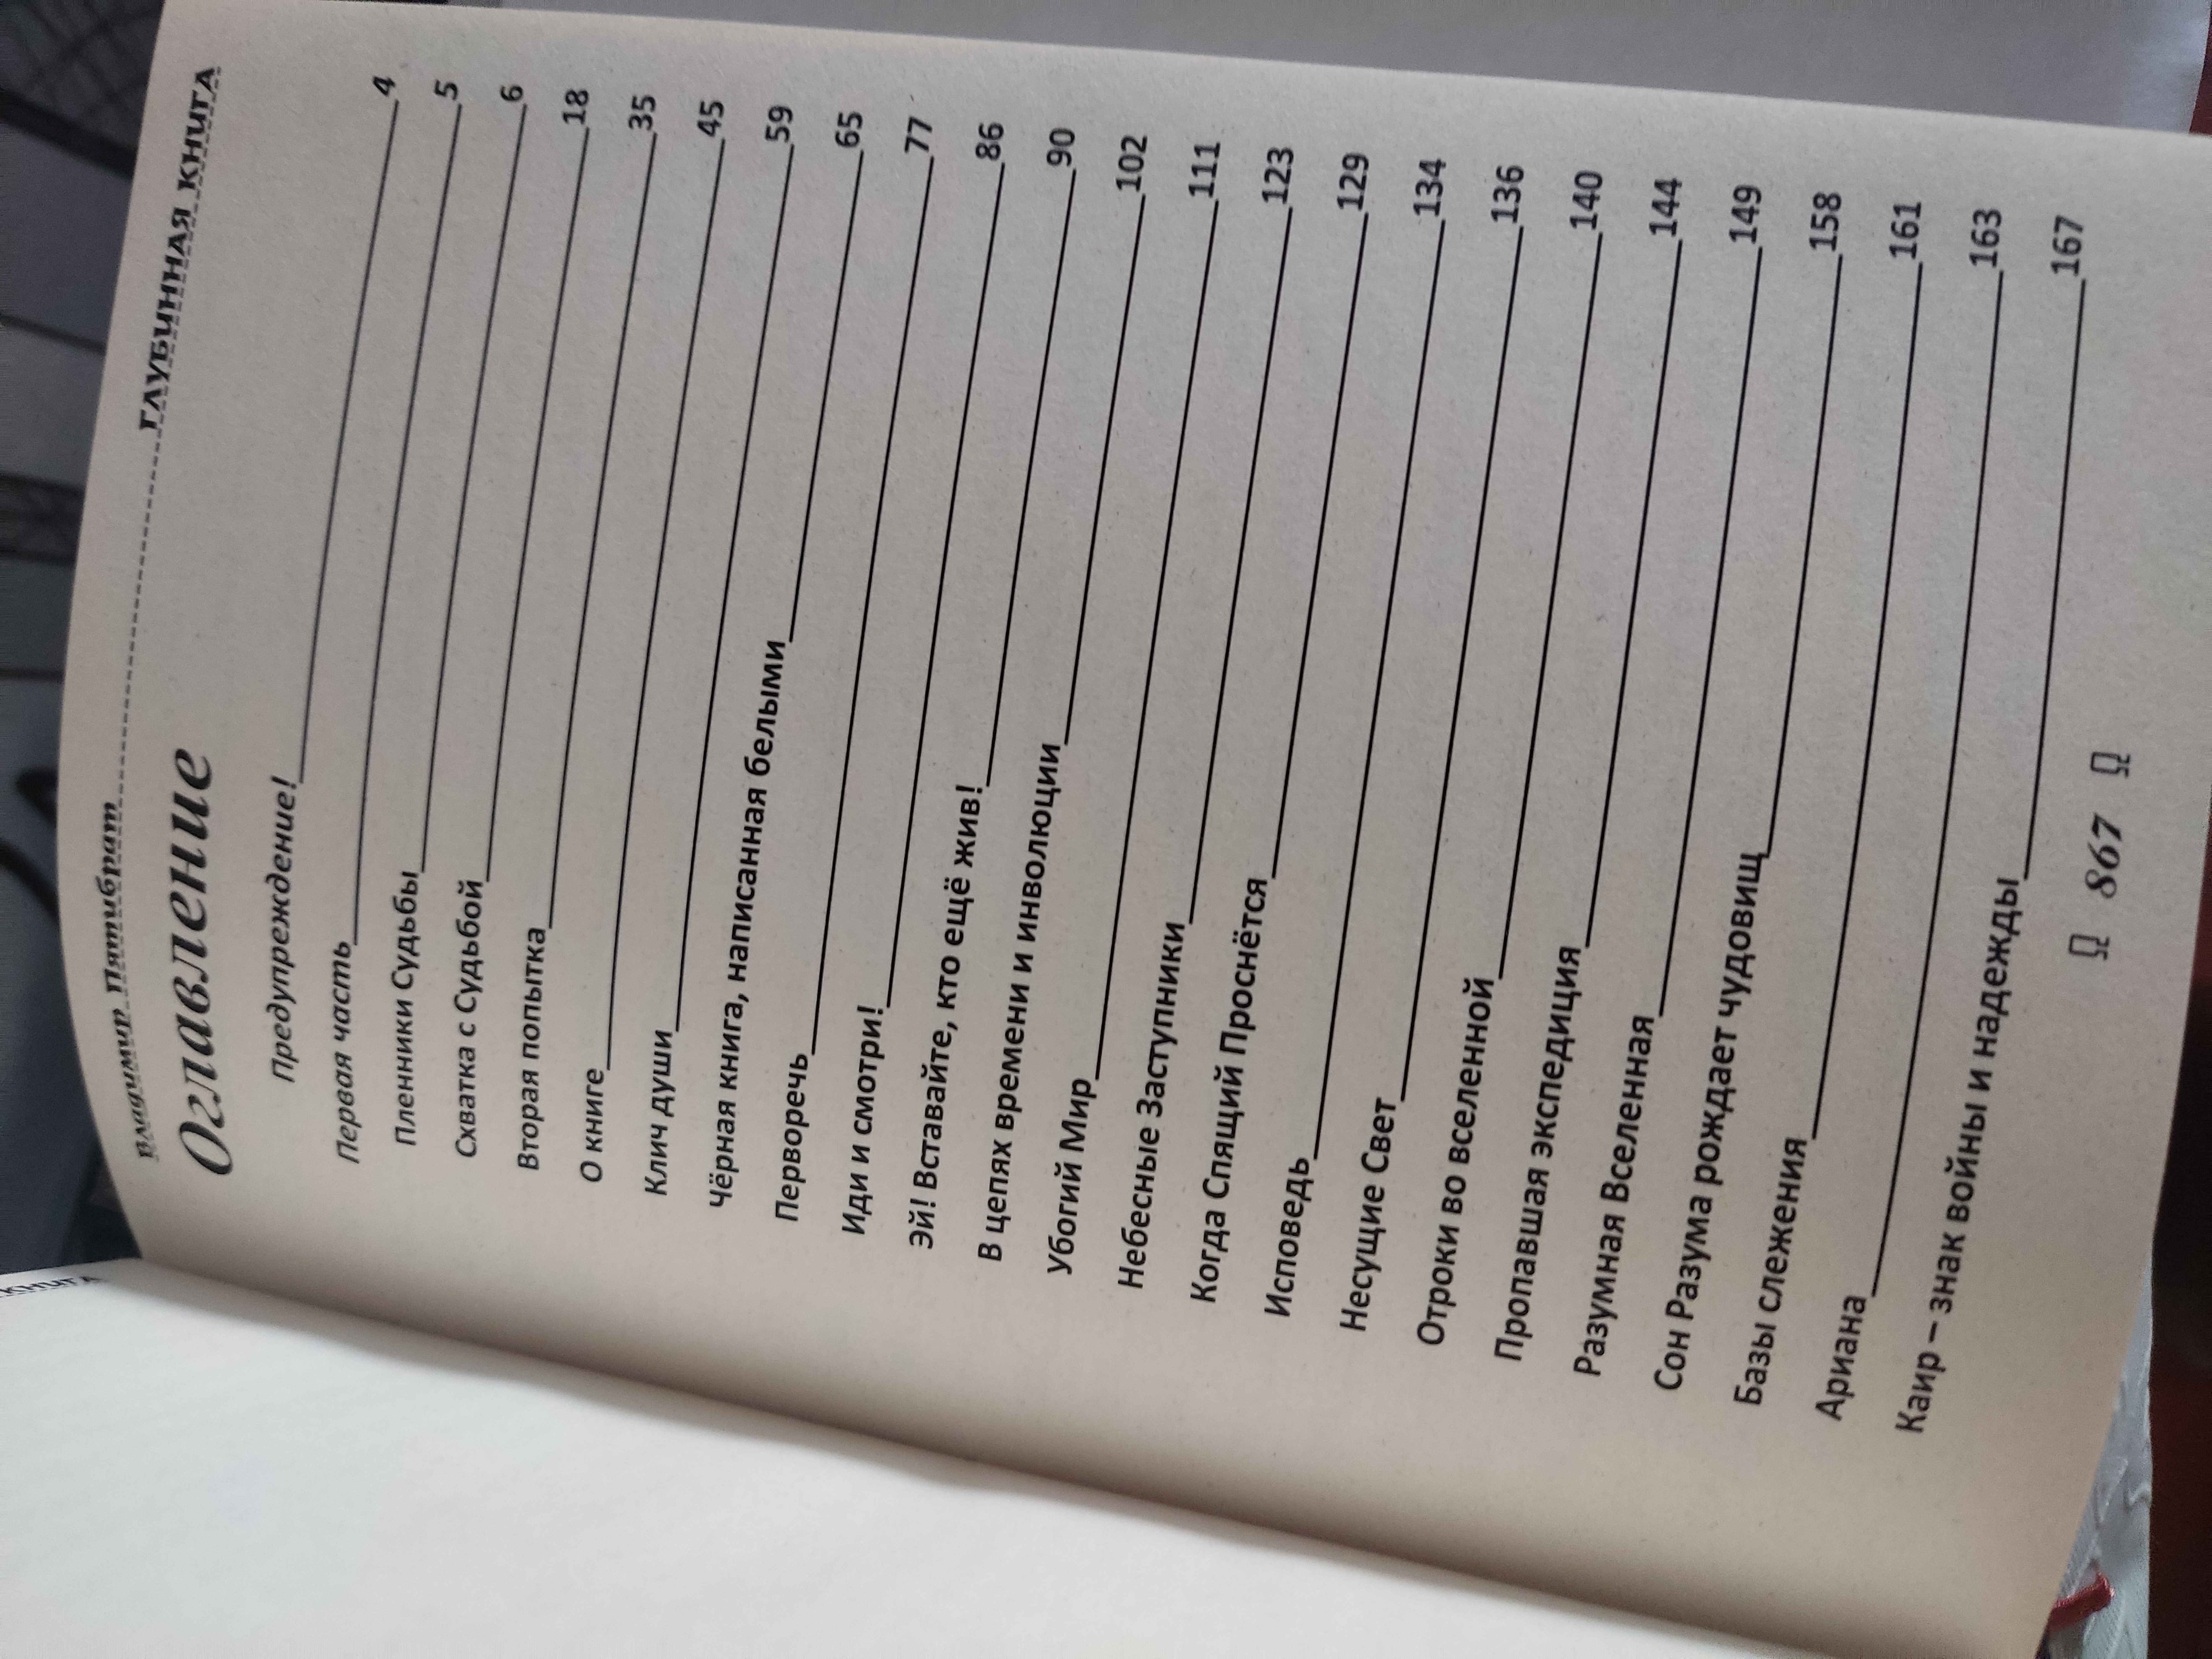 КНИГА
Владимир Пятибрат ГЛУБИННАЯ КНИГА
Оглавление
Предупреждение! 4
Первая часть 5
Пленники Судьбы 6
Схватка с Судьбой 18
Вторая попытка 35
О книге 45
Клич души 59
Чёрная книга, написанная белыми 65
Перворечь 77
Иди и смотри! 86
Эй! Вставайте, кто ещё жив! 90
В цепях времени и инволюции 102
Убогий Мир 111
Небесные Заступники 123
Когда Спящий Проснётся 129
Исповедь 134
Несущие Свет 136
Отроки во вселенной 140
Пропавшая экспедиция 144
Разумная Вселенная 149
Сон Разума рождает чудовищ 158
Базы слежения 161
Ариана 163
Каир – знак войны и надежды 167
867